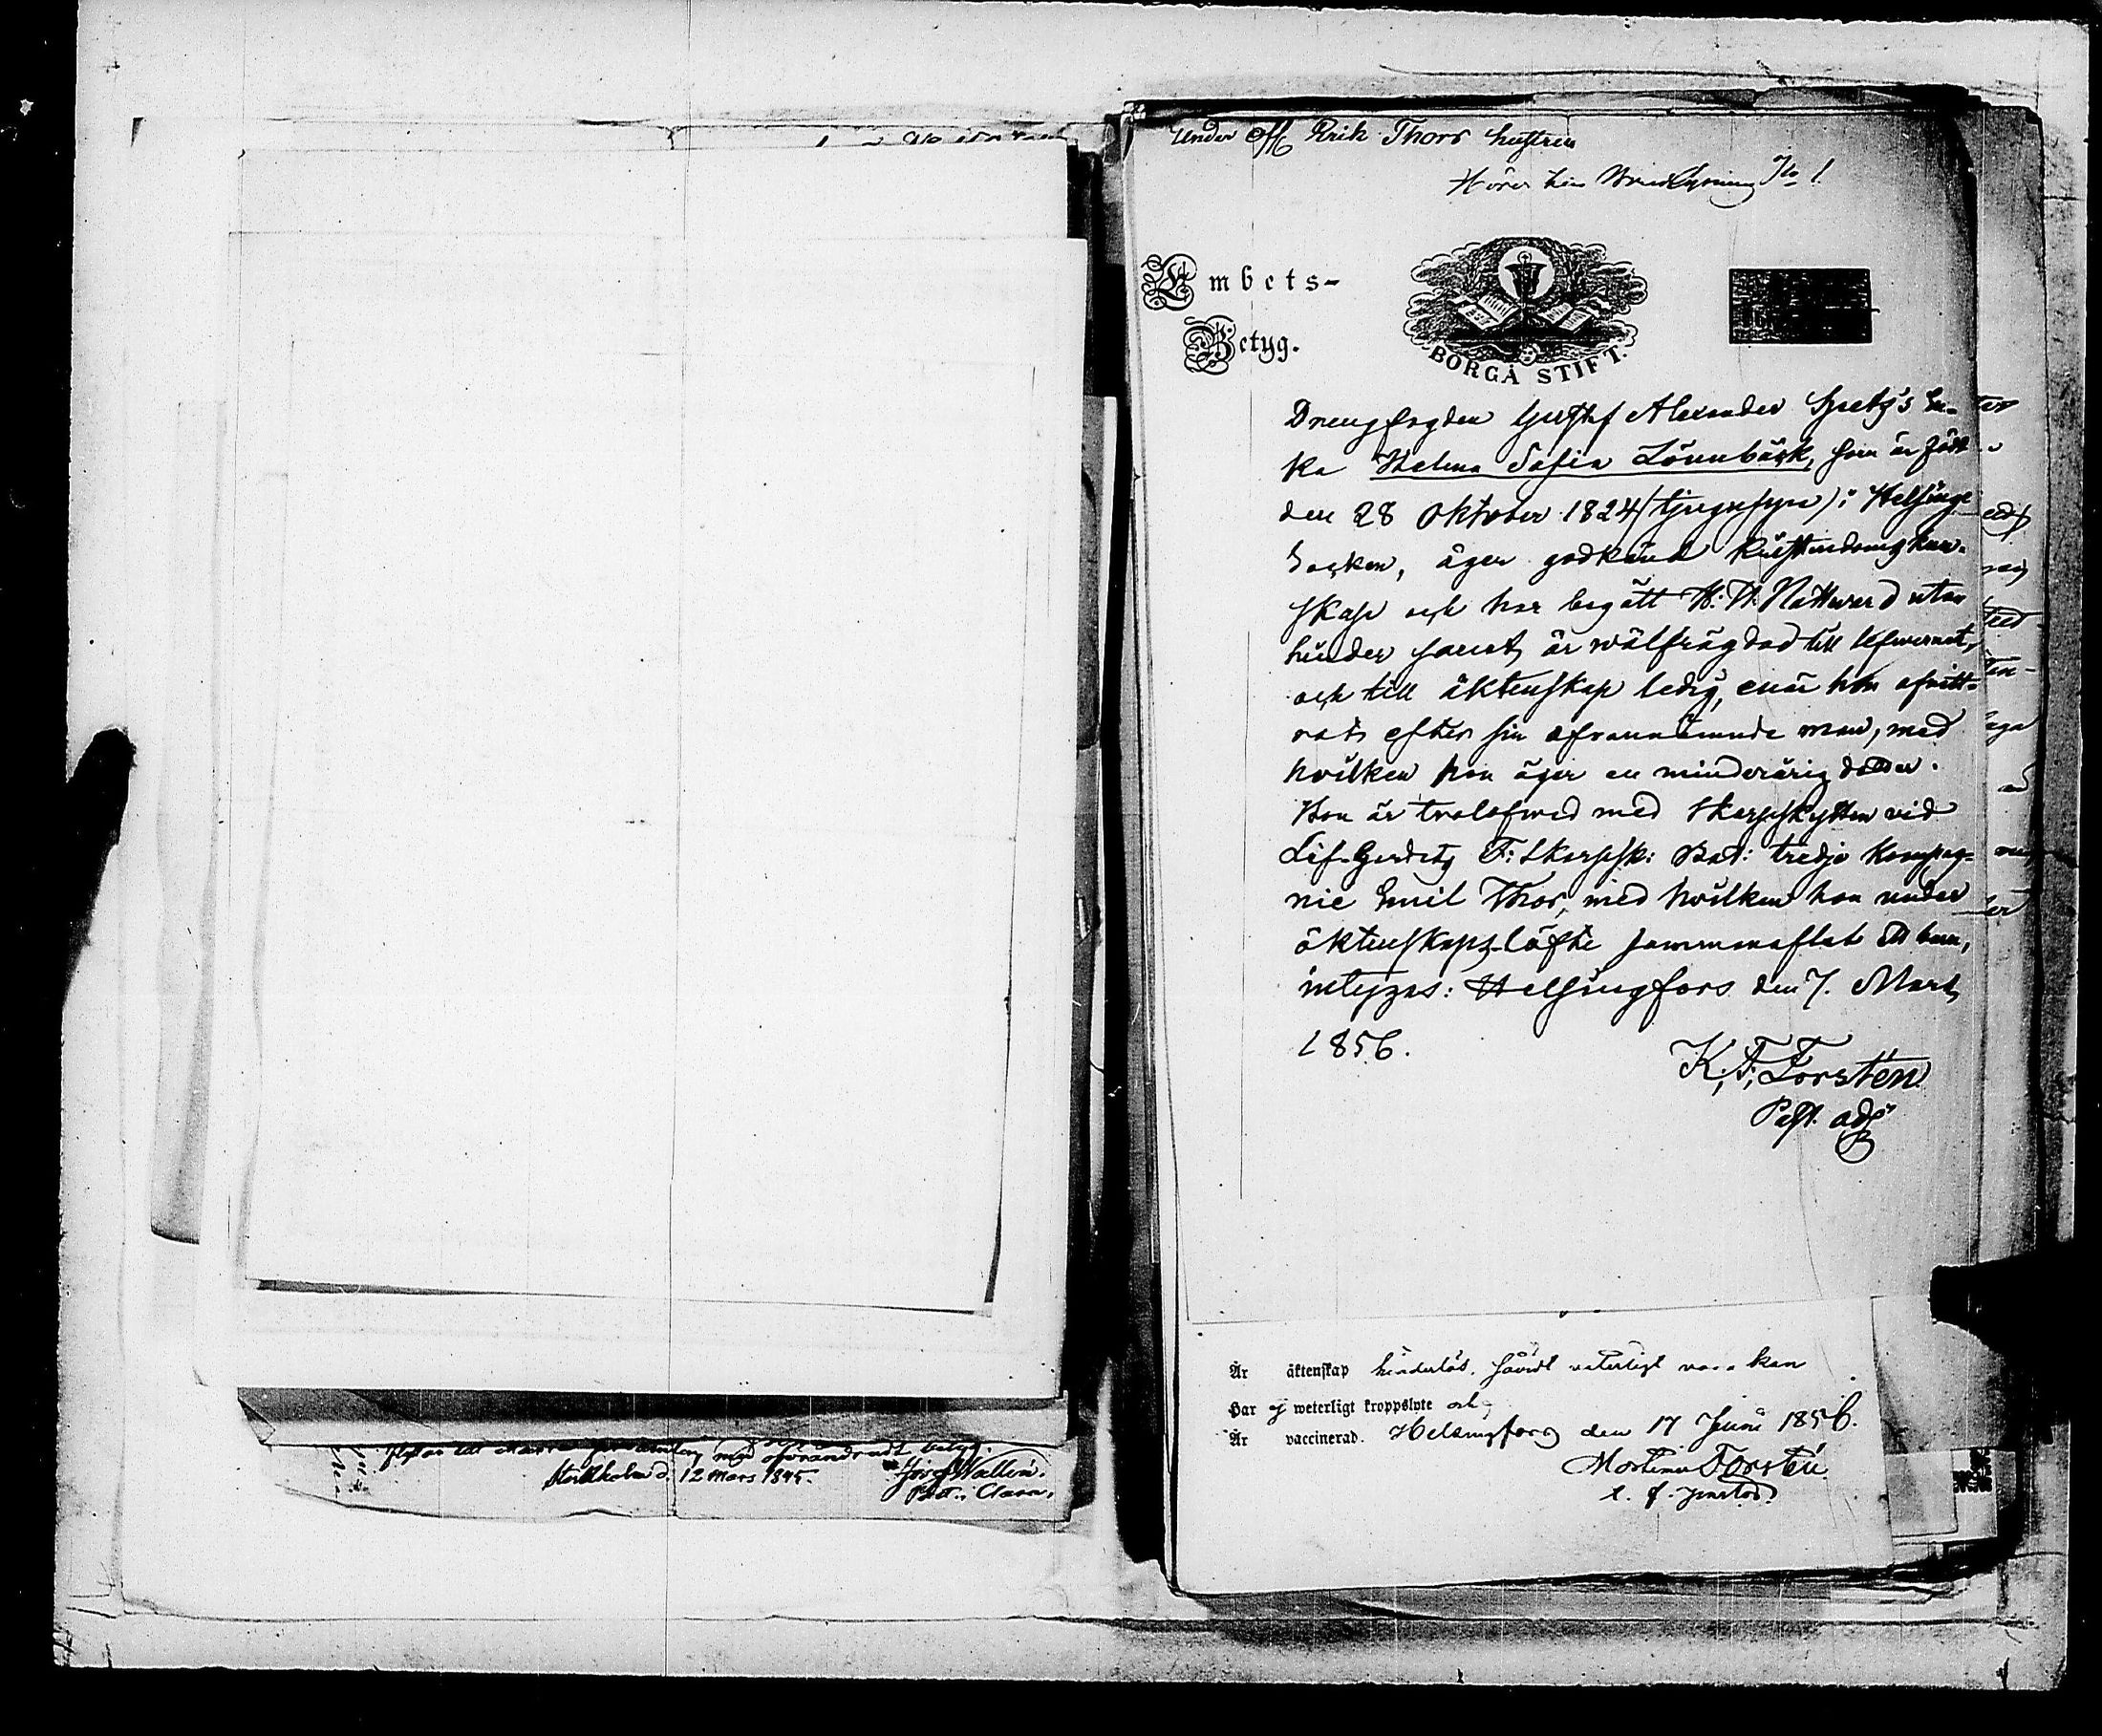 Under Off. Erik Thors hustru
Hörer hin Vindlysning No 1.
Embets-
Betyg.
BORGÅ STIFT.
Drengfogden Gustaf Alexander Spetz's En-
ka Helena Sofia Lönnbäck, som är född
den 28 Oktober 1824 (tjugufyra) i Helsinge
Socken, äger godkänd Kristendomskun-
skap och har begått H: H: Nattward utan
hinder samt är wälfrägdad till lefwernet,
och till äktenskap ledig, enär hon afvitt-
rat efter sin ofvannämnde man, med
hvilken hon äger en minderårig dotter.
Hon är trolofwad med Skarpskytten vid
Lif-Gardets F: Skarpsk: Bat: tredje Kompag-
nie Emil Thor, med hvilken hon under
äktenskaps-löfte sammanaflat ett barn,
intygas: Helsingfors den 7. Mart,
1856.
K. F. Forstén
Past. adj.
Är äktenskap hinderlös, såvidt veterligt vara kan
Har ej weterligt kroppslyte och
Är vaccinerad. Helsingfors den 17 Juni 1856.
Mortimer Forstén
t. f. pastor
flyttar till Maria församling med oförändradt betyg.
Stockholm d. 12 Mars 1845.
Josef Wallin.
Past: i Clara.